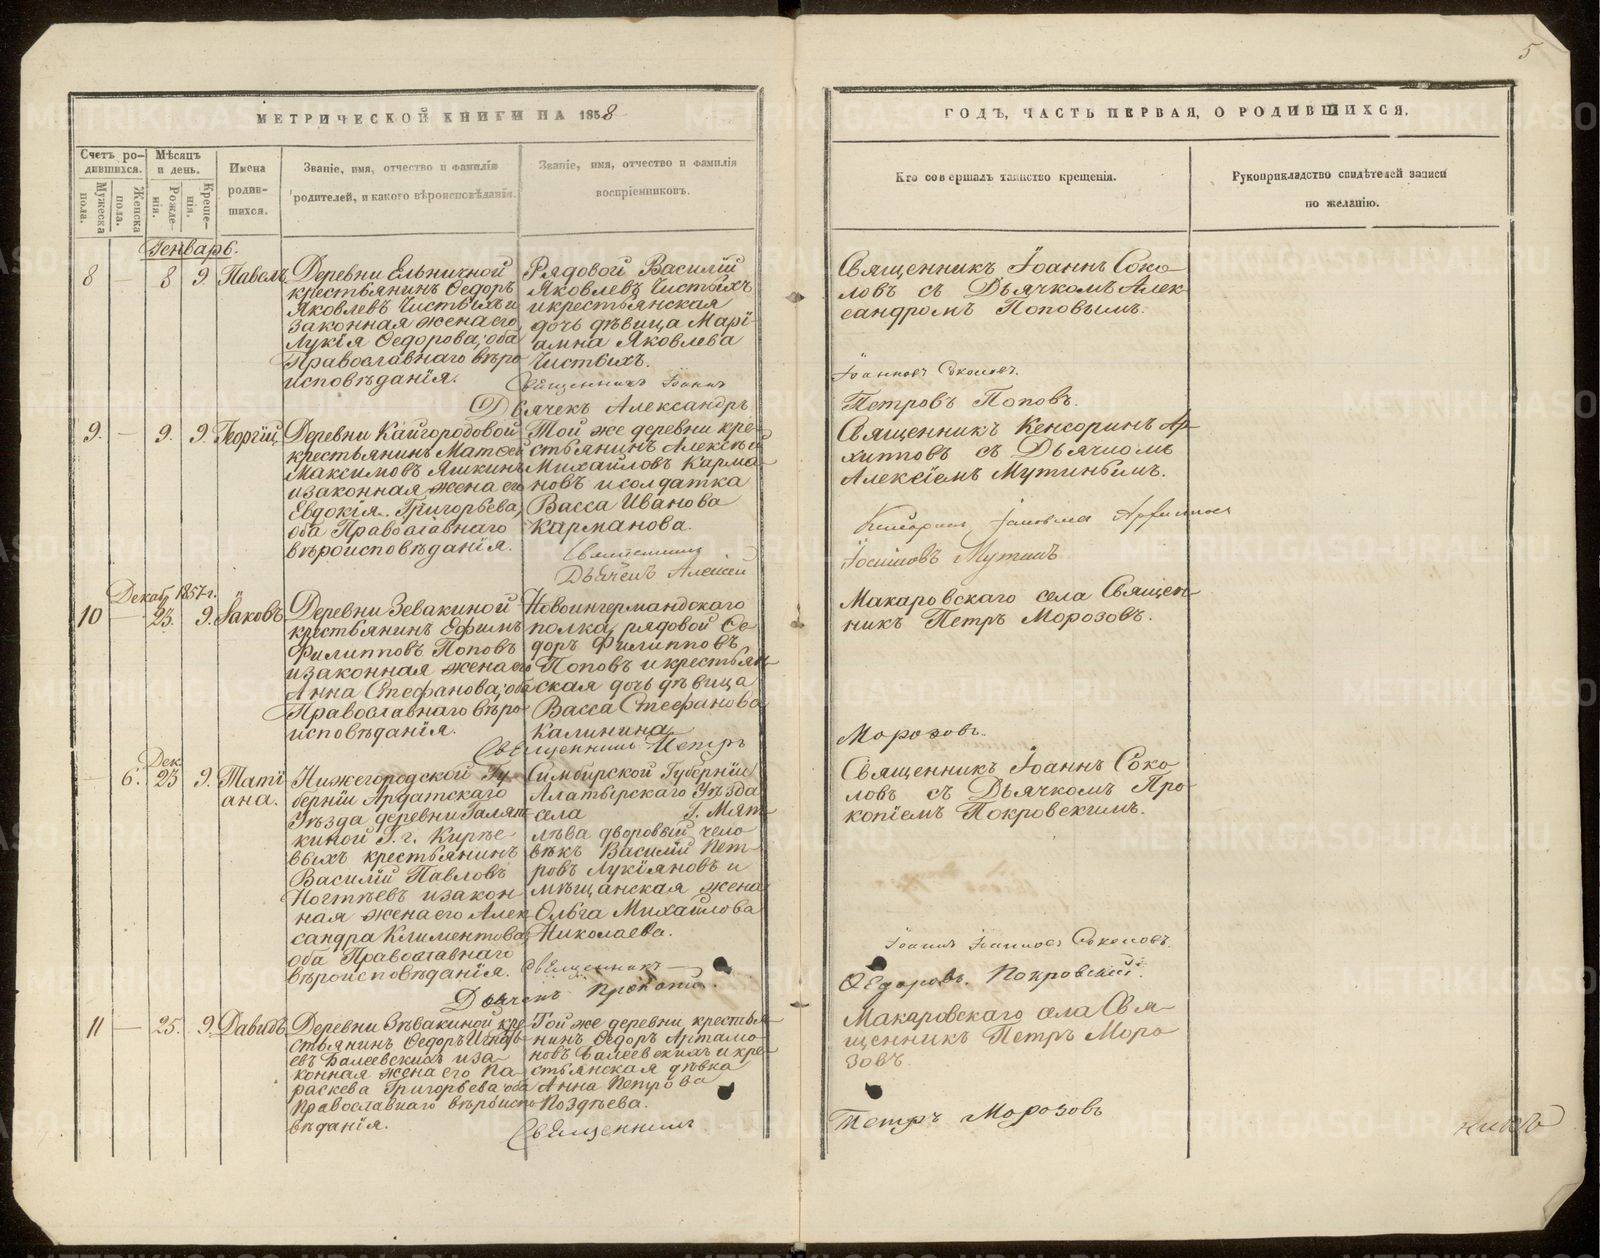 5
МЕТРИЧЕСКОЙ КНИГИ НА 1858
ГОДЪ, ЧАСТЬ ПЕРВАЯ, О РОДИВШИХСЯ.
Счетъ ро-
дившихся.
Мужеска пола.
Женска пола.
Мѣсяцъ
и день.
Рожде-
нія.
Креще-
нія.
Имена
родив-
шихся.
Званіе, имя, отчество и фамилію
родителей, и какого вѣроисповѣданія.
Званіе, имя, отчество и фамилія
воспріемниковъ.
Кто совершалъ таинство крещенія.
Рукоприкладство свидѣтелей записи
по желанію.
Генварь.
8 — 8 9. Павелъ.
Деревни Ельничной
крестьянинъ Ѳедоръ
Яковлевъ Чистыхъ и
законная жена его
Лукія Ѳедорова; оба
Православнаго вѣро
исповѣданія.
Рядовой Василій
Яковлевъ Чистыхъ
и крестьянская
дочь дѣвица Марі-
амна Яковлева
Чистыхъ.
Священникъ Іоаннъ
Дьячекъ Александръ
Священникъ Іоаннъ Соко-
ловъ съ Дьячкомъ Алек-
сандромъ Поповымъ.
Іоанновъ Соколовъ.
Петровъ Поповъ.
9. — 9. 9. Георгій.
Деревни Кайгородовой
крестьянинъ Матѳей
Максимовъ Яшкинъ
и законная жена его
Евдокія Григорьева,
оба Православнаго
вѣроисповѣданія.
Той же деревни кре-
стьянинъ Алексѣй
Михайловъ Карма-
новъ и солдатка
Васса Иванова
Карманова.
Священникъ
Дьячекъ Алексій
Священникъ Кенсоринъ Ар-
хиповъ съ Дьячкомъ
Алексіемъ Мутинымъ.
Іосифовъ Мутинъ
Декаб. 1857 г.
10 — 23. 9. Іаковъ.
Деревни Зевакиной
крестьянинъ Ефимъ
Филипповъ Поповъ
и законная жена его
Анна Стефанова; оба
Православнаго вѣро
исповѣданія.
Новоингермандскаго
полка, рядовой Ѳе
доръ Филипповъ
Поповъ и крестьян-
ская дочь дѣвица
Васса Стефанова
Калинина
Священникъ Петръ
Макаровскаго села Священ-
никъ Петръ Морозовъ.
Морозовъ.
Дек.
— 6. 23 9. Таті
ана.
Нижегородской Гу-
берніи Ардатскаго
Уѣзда деревни Галят-
киной Г. г. Кирѣе-
выхъ крестьянинъ
Василій Павловъ
Ногтѣевъ и закон-
ная жена его Алек-
сандра Климентова;
оба Православнаго
вѣроисповѣданія.
Симбирской Губерніи
Алатырскаго Уѣзда
села Г. Мят-
лѣва дворовый чело
вѣкъ Василій Пет-
ровъ Лукіяновъ и
мѣщанская жена
Ольга Михайлова
Николаева.
Священникъ
Дьячекъ Прокопій
Священникъ Іоаннъ Соко
ловъ съ Дьячкомъ Про-
копіемъ Покровскимъ.
Іоаннъ Іоанновъ Соколовъ.
Ѳедоровъ Покровскій.
11 — 25. 9. Давидъ.
Деревни Зѣвакиной кре-
стьянинъ Ѳедоръ Игнать-
евъ Балеевскихъ и за-
конная жена его Па-
раскева Григорьева оба
Православнаго вѣроиспо-
вѣданія.
Той же деревни, крестья-
нинъ Ѳедоръ Артамо-
новъ Балеевскихъ и кре-
стьянская дѣвка
Анна Петрова
Поздѣева.
Священникъ
Макаровскаго села Свя-
щенникъ Петръ Моро
зовъ
Петръ Морозовъ